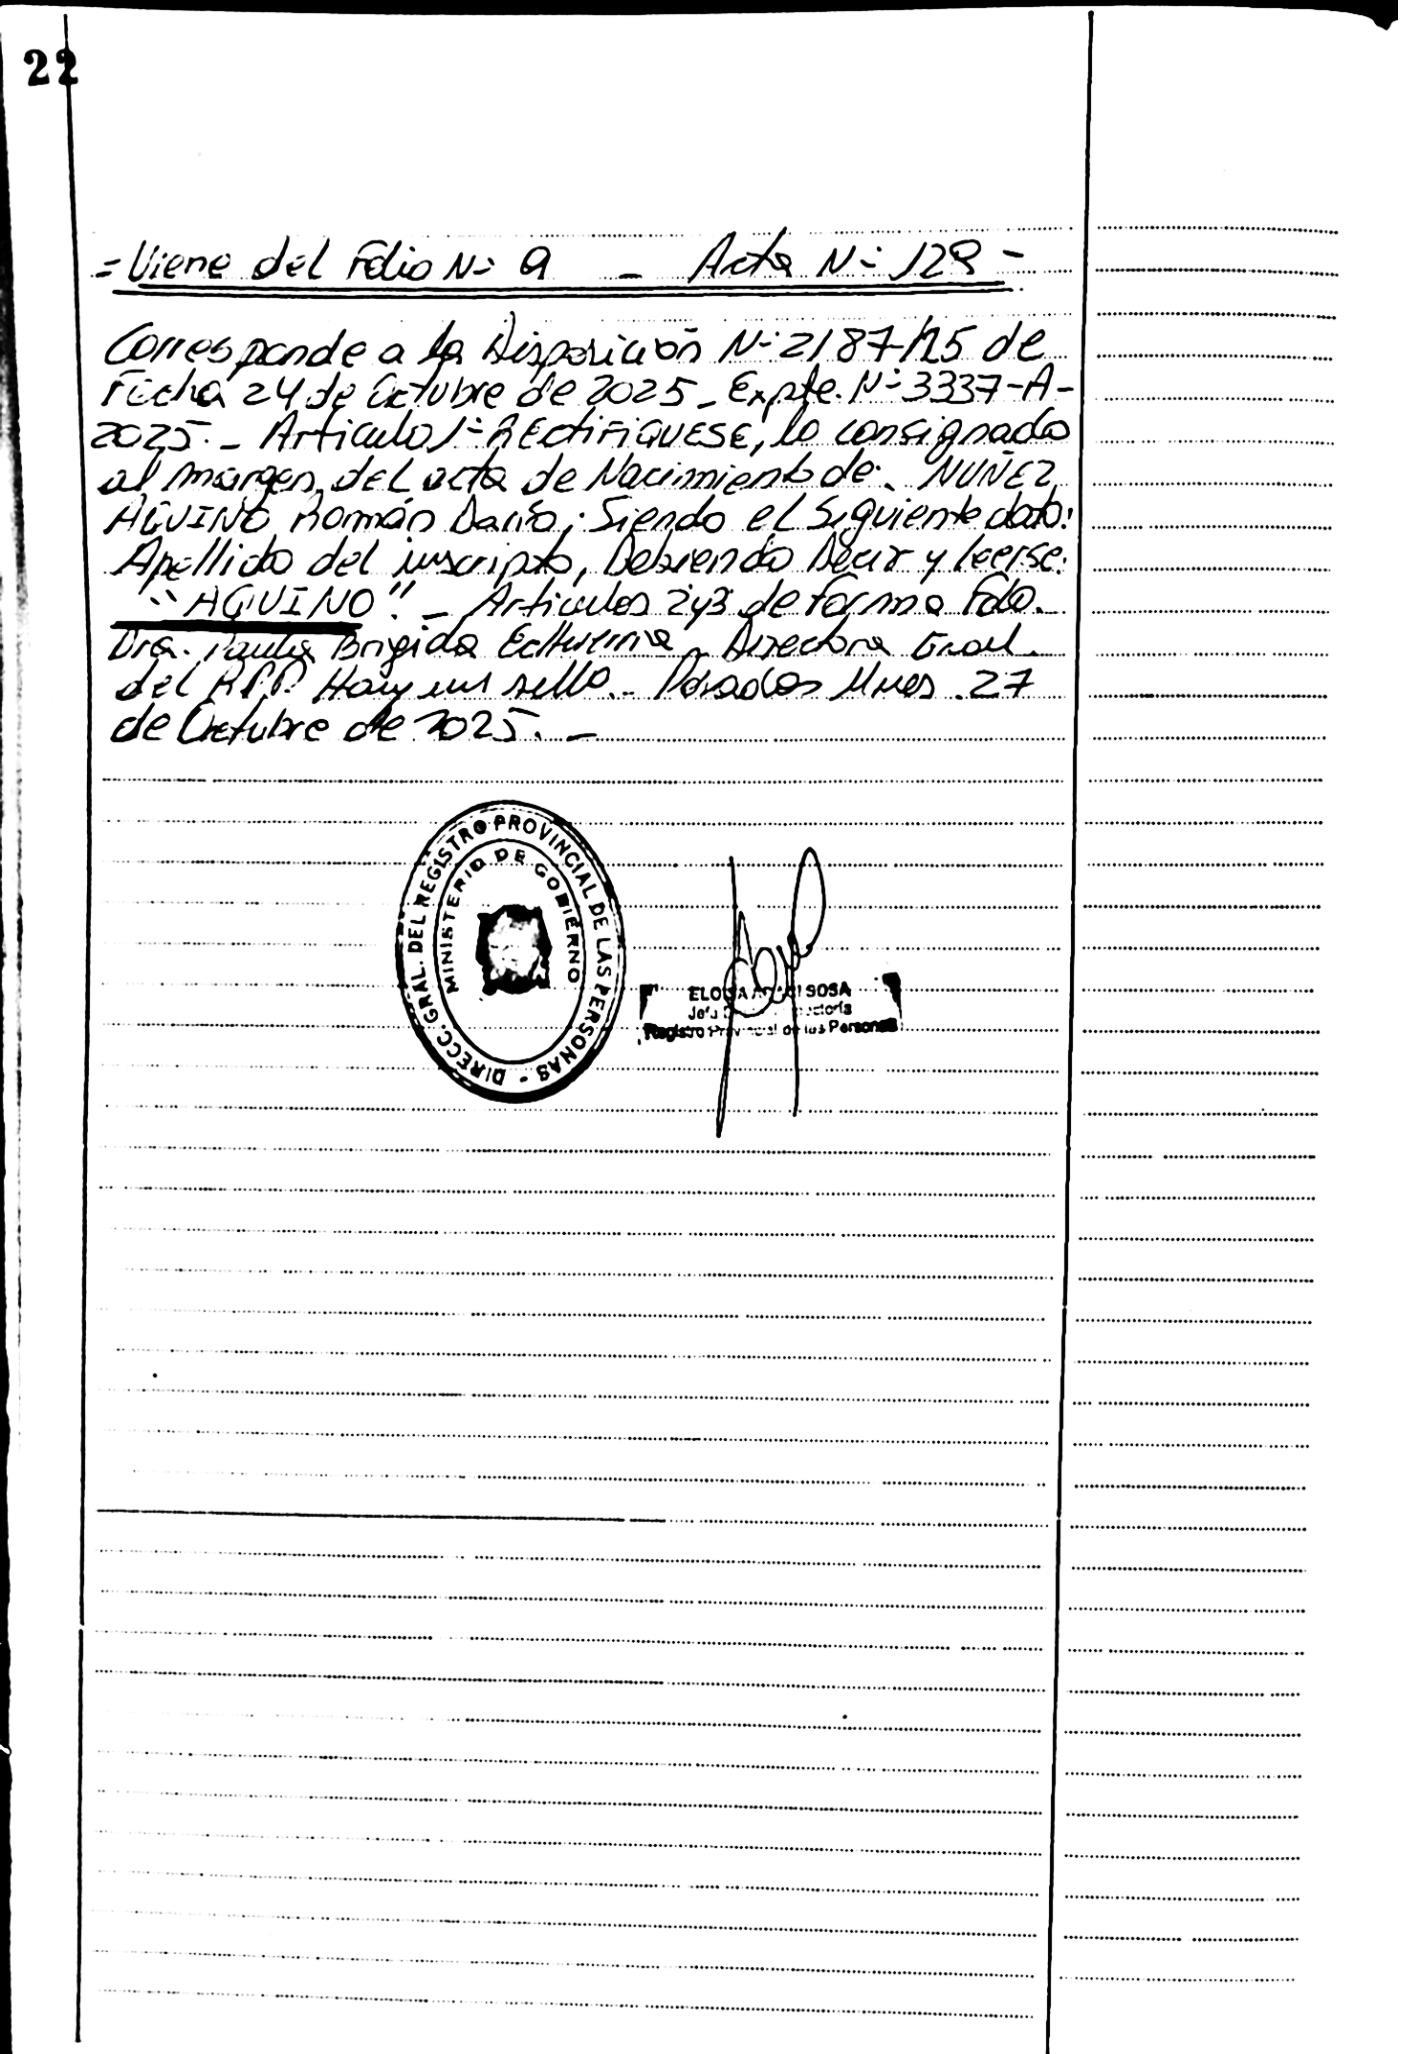 22
= Viene del Folio Nº 9 - Acta Nº 129 -
Corresponde a la Disposición Nº 2187/25 de
Fecha 24 de Octubre de 2025 - Expte. Nº 3337-A-
2025. - Articulo 1º RECTIFIQUESE, lo consignado
al margen, del acta de Nacimiento de: NUÑEZ
AQUINO Román Darío; Siendo el Siguiente dato:
Apellido del inscripto, Debiendo Decir y leerse:
"AQUINO" - Articulos 2 y 3 de forma Fdo.
Dra. Paula Brigida - Directora Gral.
del R.P.P Hay un sello. - Posadas Mnes. 27
de Octubre de 2025. -
DIRECC. GRAL. DEL REGISTRO PROVINCIAL DE LAS PERSONAS -
MINISTERIO DE GOBIERNO
SOSA
Registro Provincial de las Personas